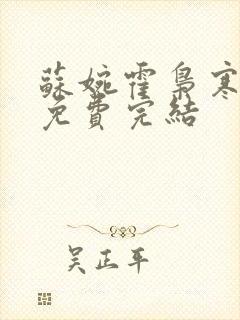 蘇婉霍梟寒
免費完結
吳正平